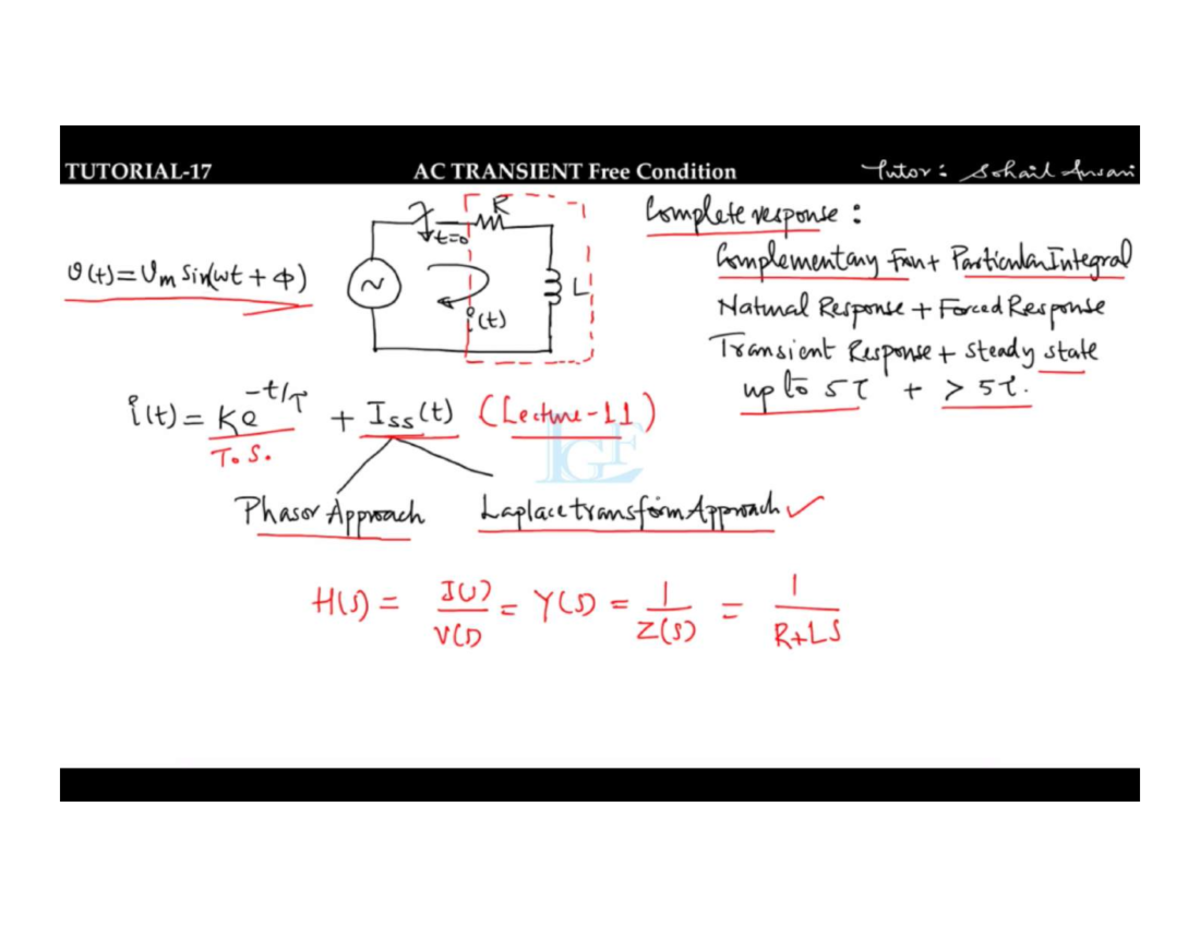 TUTORIAL-17 AC TRANSIENT Free Condition Tutor: Sohail Ansari
Complete response:
Complementary Fun + Particular Integral
Natural Response + Forced Response
Transient Response + Steady state
up to 5τ + > 5τ.
v(t)=Vm Sin(wt + Φ)
t=0
R
L
i(t)
i(t) = Ke^-t/τ + Iss(t) (Lecture-11)
T.S.
IGE
Phasor Approach Laplace transform Approach ✓
H(s) = I(s)/V(s) = Y(s) = 1/Z(s) = 1/R+LS